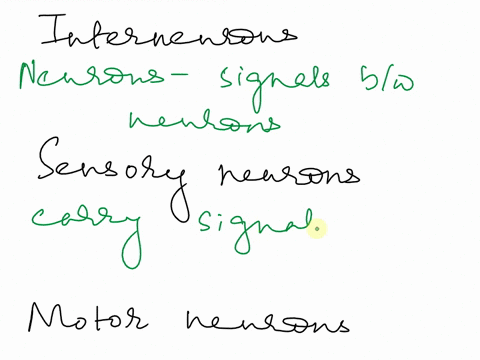 Interneurons
Neurons - signals b/w
neurons
Sensory neurons
carry signal
Motor neurons